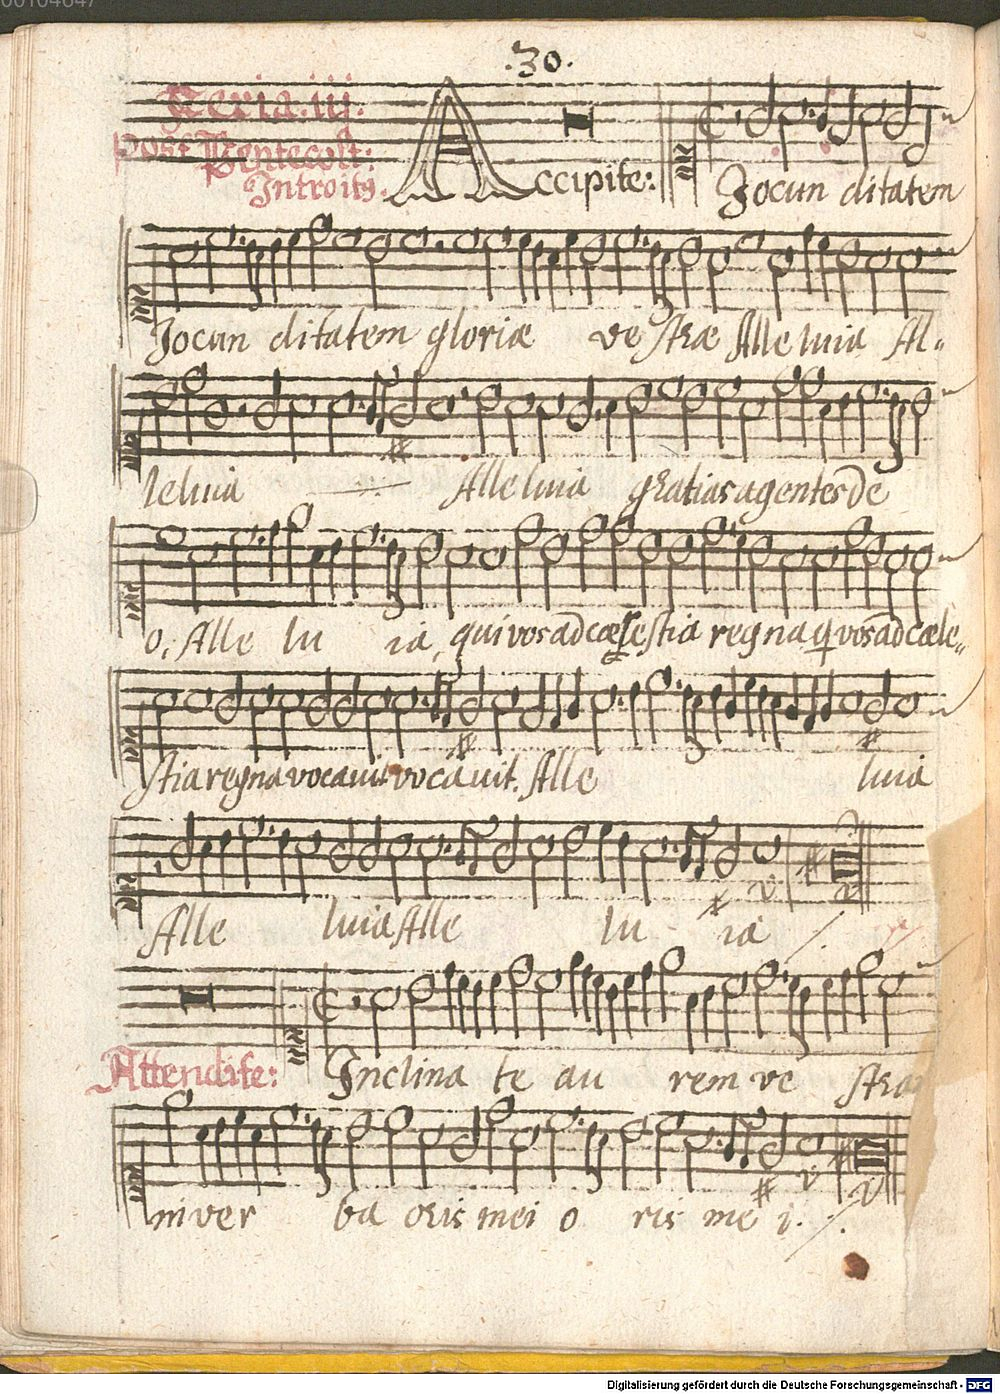 00104647
.30.
Feria. iii.
Post Pentecost:
Introitꝰ.
Accipite:
Jocun ditatem
Jocun ditatem gloriæ ve stræ Alle luia Al-
leluia Alle luia gratias agentes de
o, Alle lu ia, qui vos ad cælestia regna q vos ad cæle-
stia regna vocavit vocavit. Alle luia
Alle luia Alle lu ia
Attendite: Inclina te au rem ve stra
in ver ba oris mei o ris me i.
Digitalisierung gefördert durch die Deutsche Forschungsgemeinschaft - DFG